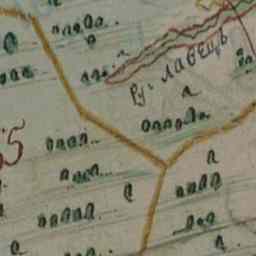 Ру: лавецъ
55